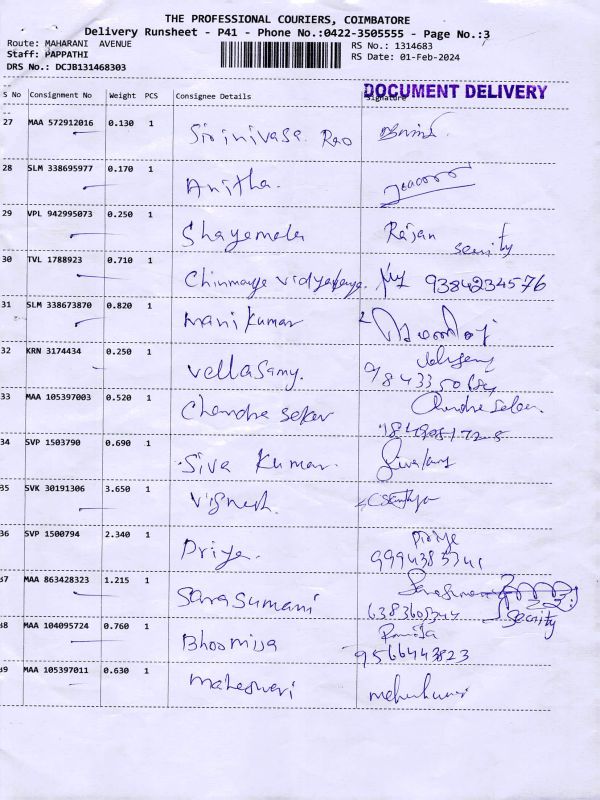 THE PROFESSIONAL COURIERS, COIMBATORE
Delivery Runsheet - P41 - Phone No.:0422-3505555 - Page No.:3
Route: MAHARANI AVENUE
Staff: PAPPATHI
DRS No.: DCJB131468303
RS No.: 1314683
RS Date: 01-Feb-2024
DOCUMENT DELIVERY
S No Consignment No Weight PCS Consignee Details Signature
27 MAA 572912016 0.130 1 Srinivasa Rao
28 SLM 338695977 0.170 1 Anitha.
29 VPL 942995073 0.250 1 Shayemala Rajan
30 TVL 1788923 0.710 1 Chinmaya 9384234576
31 SLM 338673870 0.820 1 Manikumar
32 KRN 3174434 0.250 1 Vellasamy.
33 MAA 105397003 0.520 1 Chandra seker
34 SVP 1503790 0.690 1 Siva Kumar.
35 SVK 30191306 3.650 1 Vignesh.
36 SVP 1500794 2.340 1 Priya. Priya
37 MAA 863428323 1.215 1 Sarasumani
38 MAA 104095724 0.760 1 Bhoomiva
9566443823
39 MAA 105397011 0.630 1 Maheswari